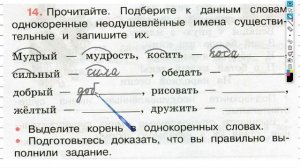 14. Прочитайте. Подберите к данным словам
однокоренные неодушевлённые имена существи-
тельные и запишите их.
Мудрый — мудрость, косить — коса
сильный — сила, обедать —
добрый — доб рисовать —
жёлтый — , дружить —
• Выделите корень в однокоренных словах.
• Подготовьтесь доказать, что вы правильно вы-
полнили задание.